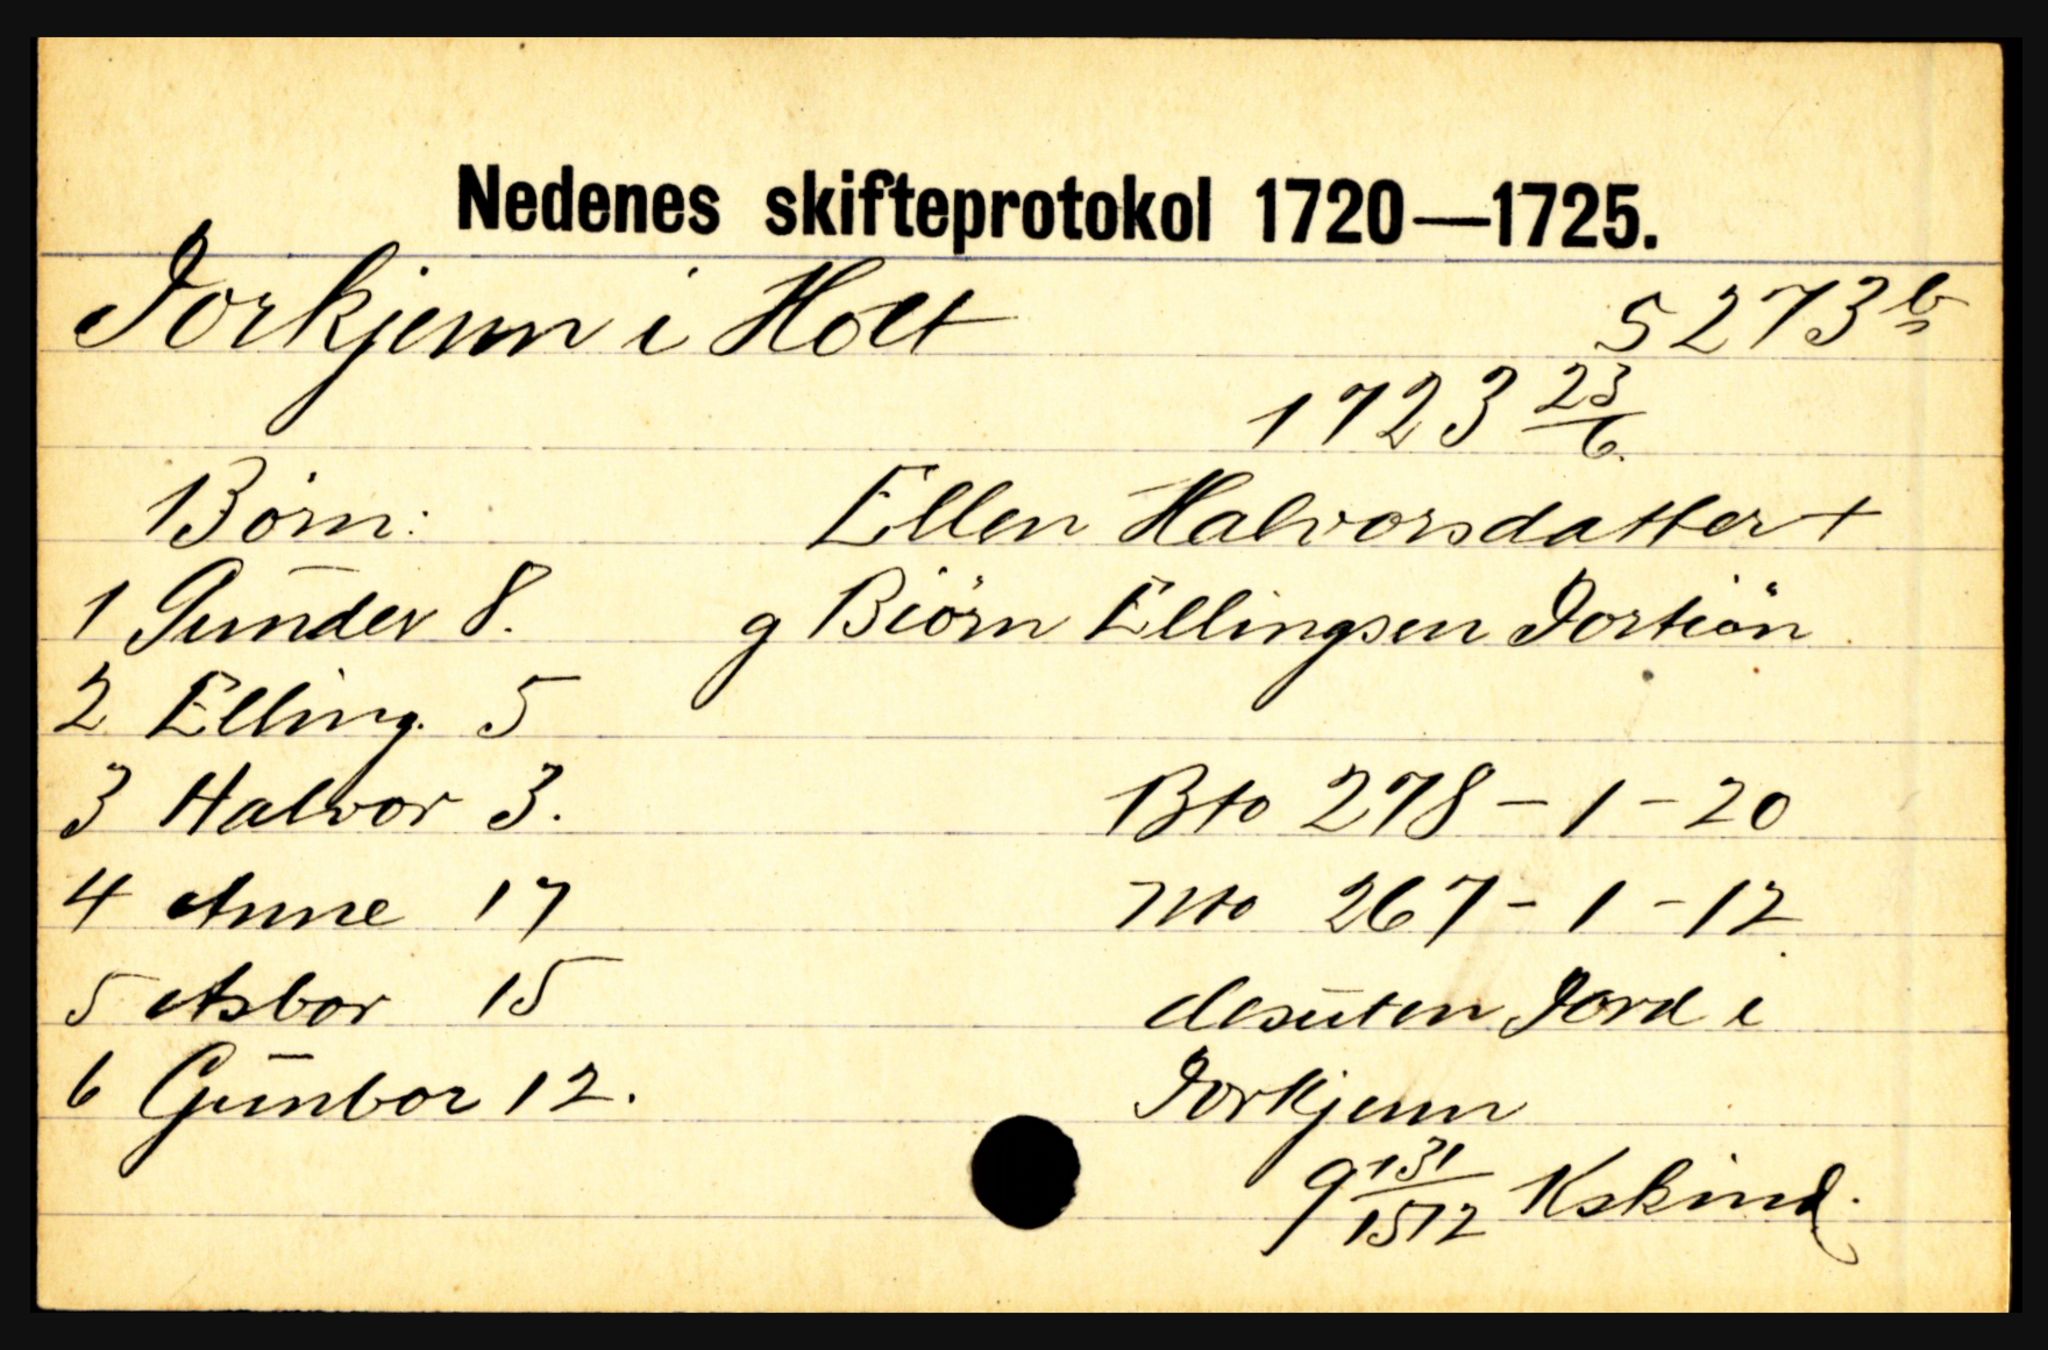 Nedenes skifteprotokol 1720—1725.
Jorkjenn i Holt
5 273 b
1723 23/6.
Börn:
Ellen Halvorsdatter +
1 Gunder 8.
g Biörn Ellingsen Jortiön
2 Elling. 5
3 Halvor 3.
Bto 278 - 1 - 20
4 Anne 17
Nto 267 - 1 - 12
5 Asbor 15
desuten Jord i
6 Gunbor 12.
Jorkjenn
9 131/1512 Kskind.